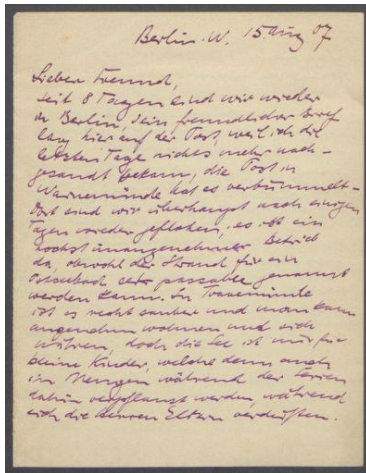 Berlin. W. 15 Aug 07
Lieber Freund,
seit 8 Tagen sind wir wieder
in Berlin, dein freundlicher Brief
lag hier auf der Post, weil ich die
letzten Tage nichts mehr nach-
gesandt bekam, die Post in
Warnemünde hat es verbummelt -
Dort sind wir überhaupt nach einigen
Tagen wieder geflohen, es ist ein
höchst unangenehmer Betrieb
da, obwohl der Strand für ein
Ostseebad sehr passable genannt
werden kann. In Travemünde
ist es recht sauber und man kann
angenehm wohnen und sich
nähren, doch die See ist nur für
kleine Kinder, welche denn auch
in Mengen während der Ferien
dahin verpflanzt werden, während
sich die Eltern verdüften.